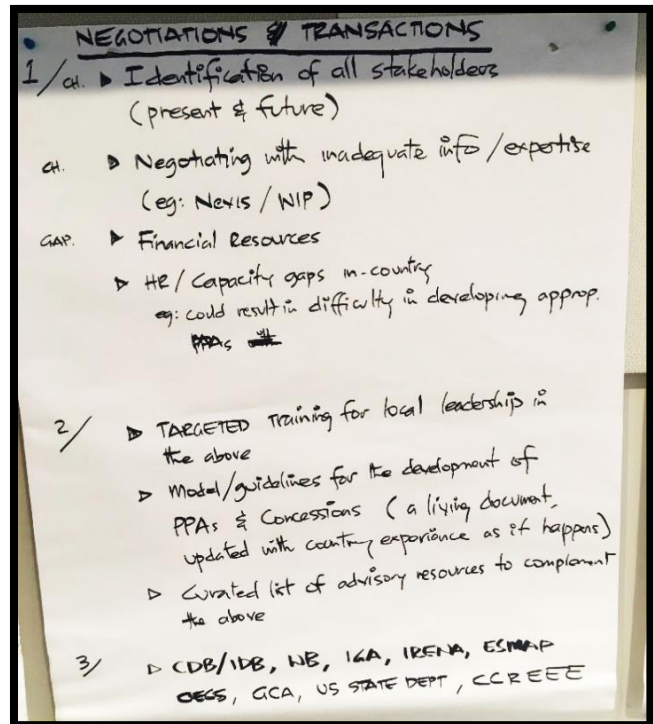 NEGOTIATIONS & TRANSACTIONS
1/ CH. ▶ Identification of all stakeholders
(present & future)
CH. ▶ Negotiating with inadequate info/expertise
(eg: Nexis / WIP)
GAP. ▶ Financial Resources
▶ HR / Capacity gaps in-country
eg: could result in difficulty in developing approp.
PPAs
2/ ▶ TARGETED training for local leadership in
the above
▶ Model/guidelines for the development of
PPAs & Concessions (a living document,
updated with country experience as it happens)
▶ Curated list of advisory resources to complement
the above
3/ ▶ CDB/IDB, WB, IGA, IRENA, ESMAP
OECS, GCA, US STATE DEPT, CCREEE